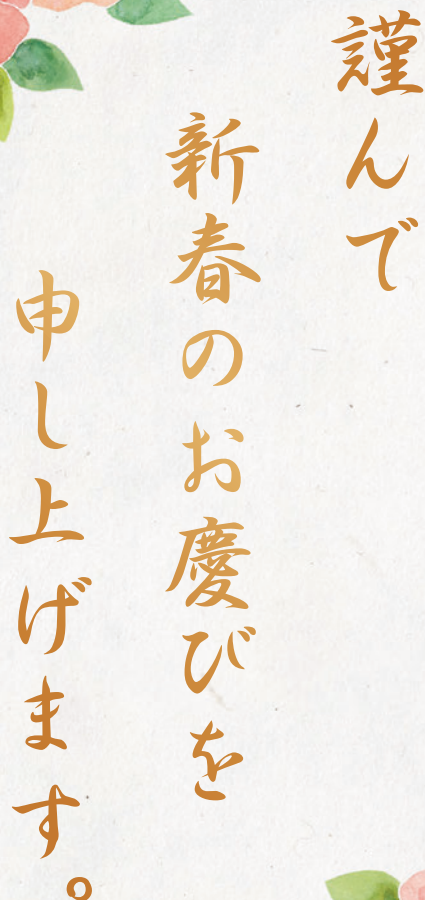 謹んで
新春のお慶びを
申し上げます。